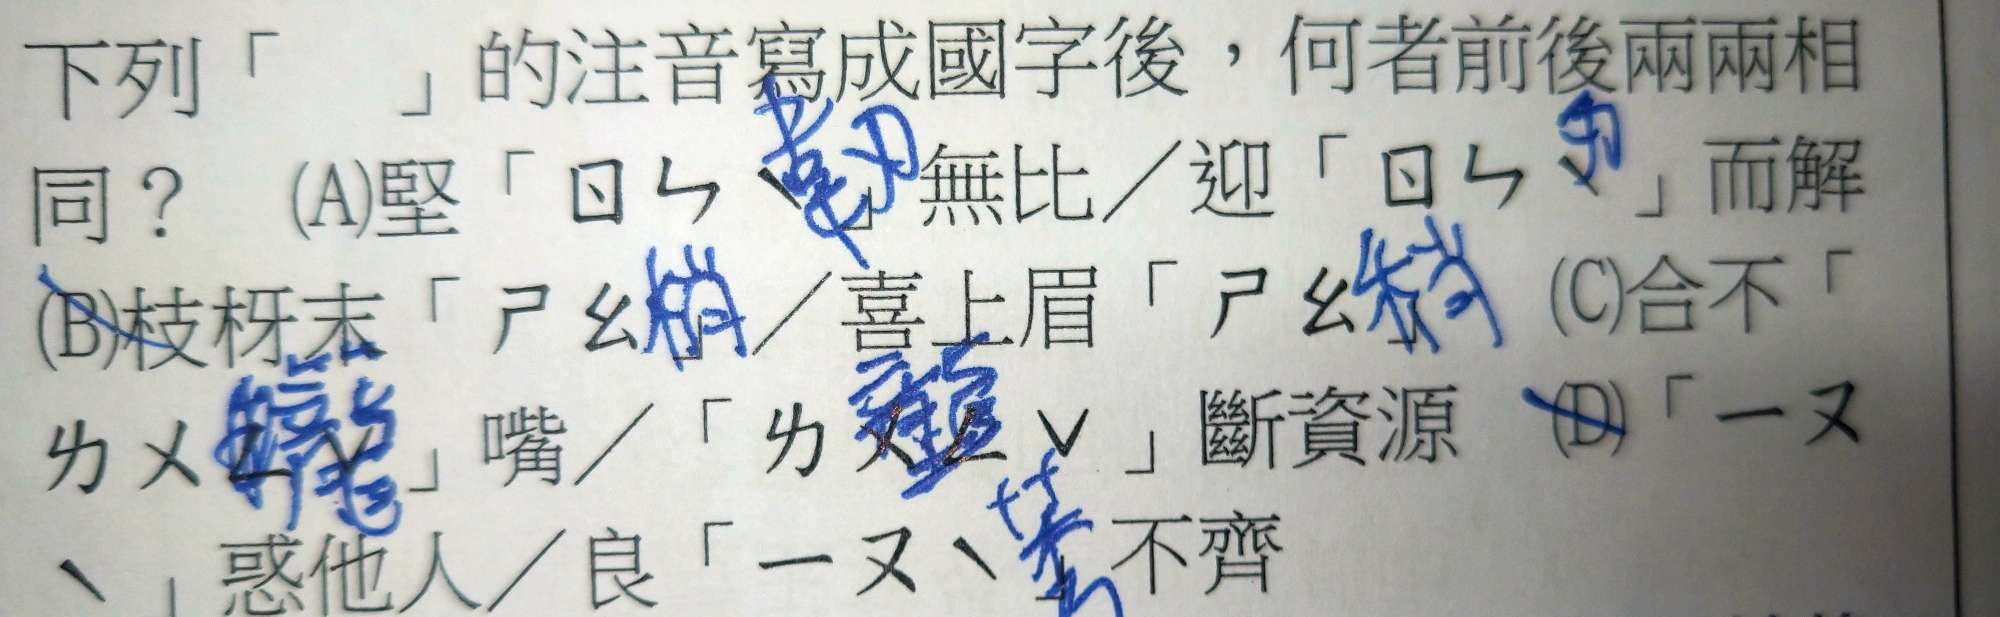 下列「　　」的注音寫成國字後，何者前後兩兩相
同？　(A)堅「ㄖㄣˋ韌」無比／迎「ㄖㄣˋ刃」而解
(B)枝枒末「ㄕㄠ梢」／喜上眉「ㄕㄠ梢」　(C)合不「
ㄌㄨㄥˇ」嘴／「ㄌㄨㄥˇ壟」斷資源　(D)「ㄧㄡ
ˋ」惑他人／良「ㄧㄡˋ莠」不齊